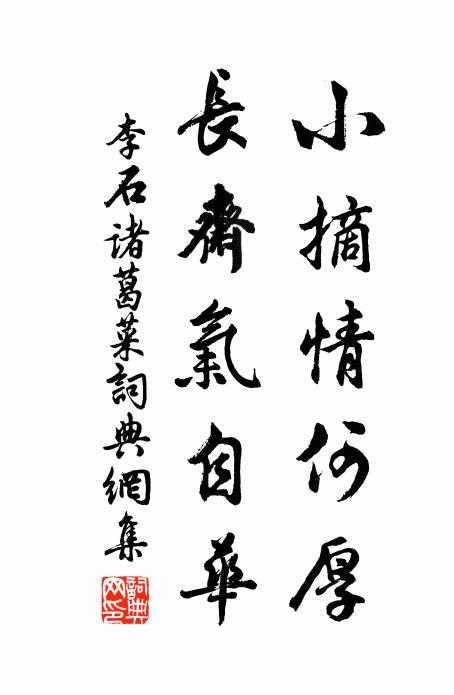 小摘情何厚
長齋氣自華
李石诸葛菜詞典網集
詞典
网印